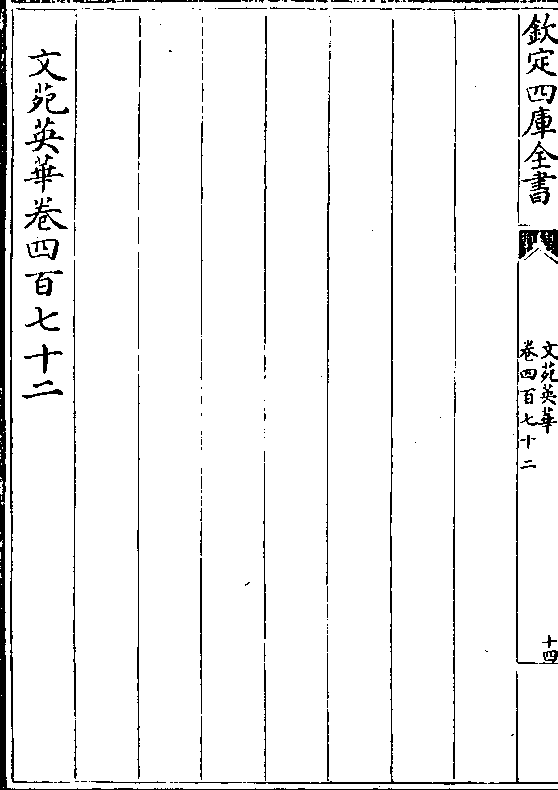 欽定四庫全書
文苑英華
卷四百七十二
十四
文苑英華卷四百七十二